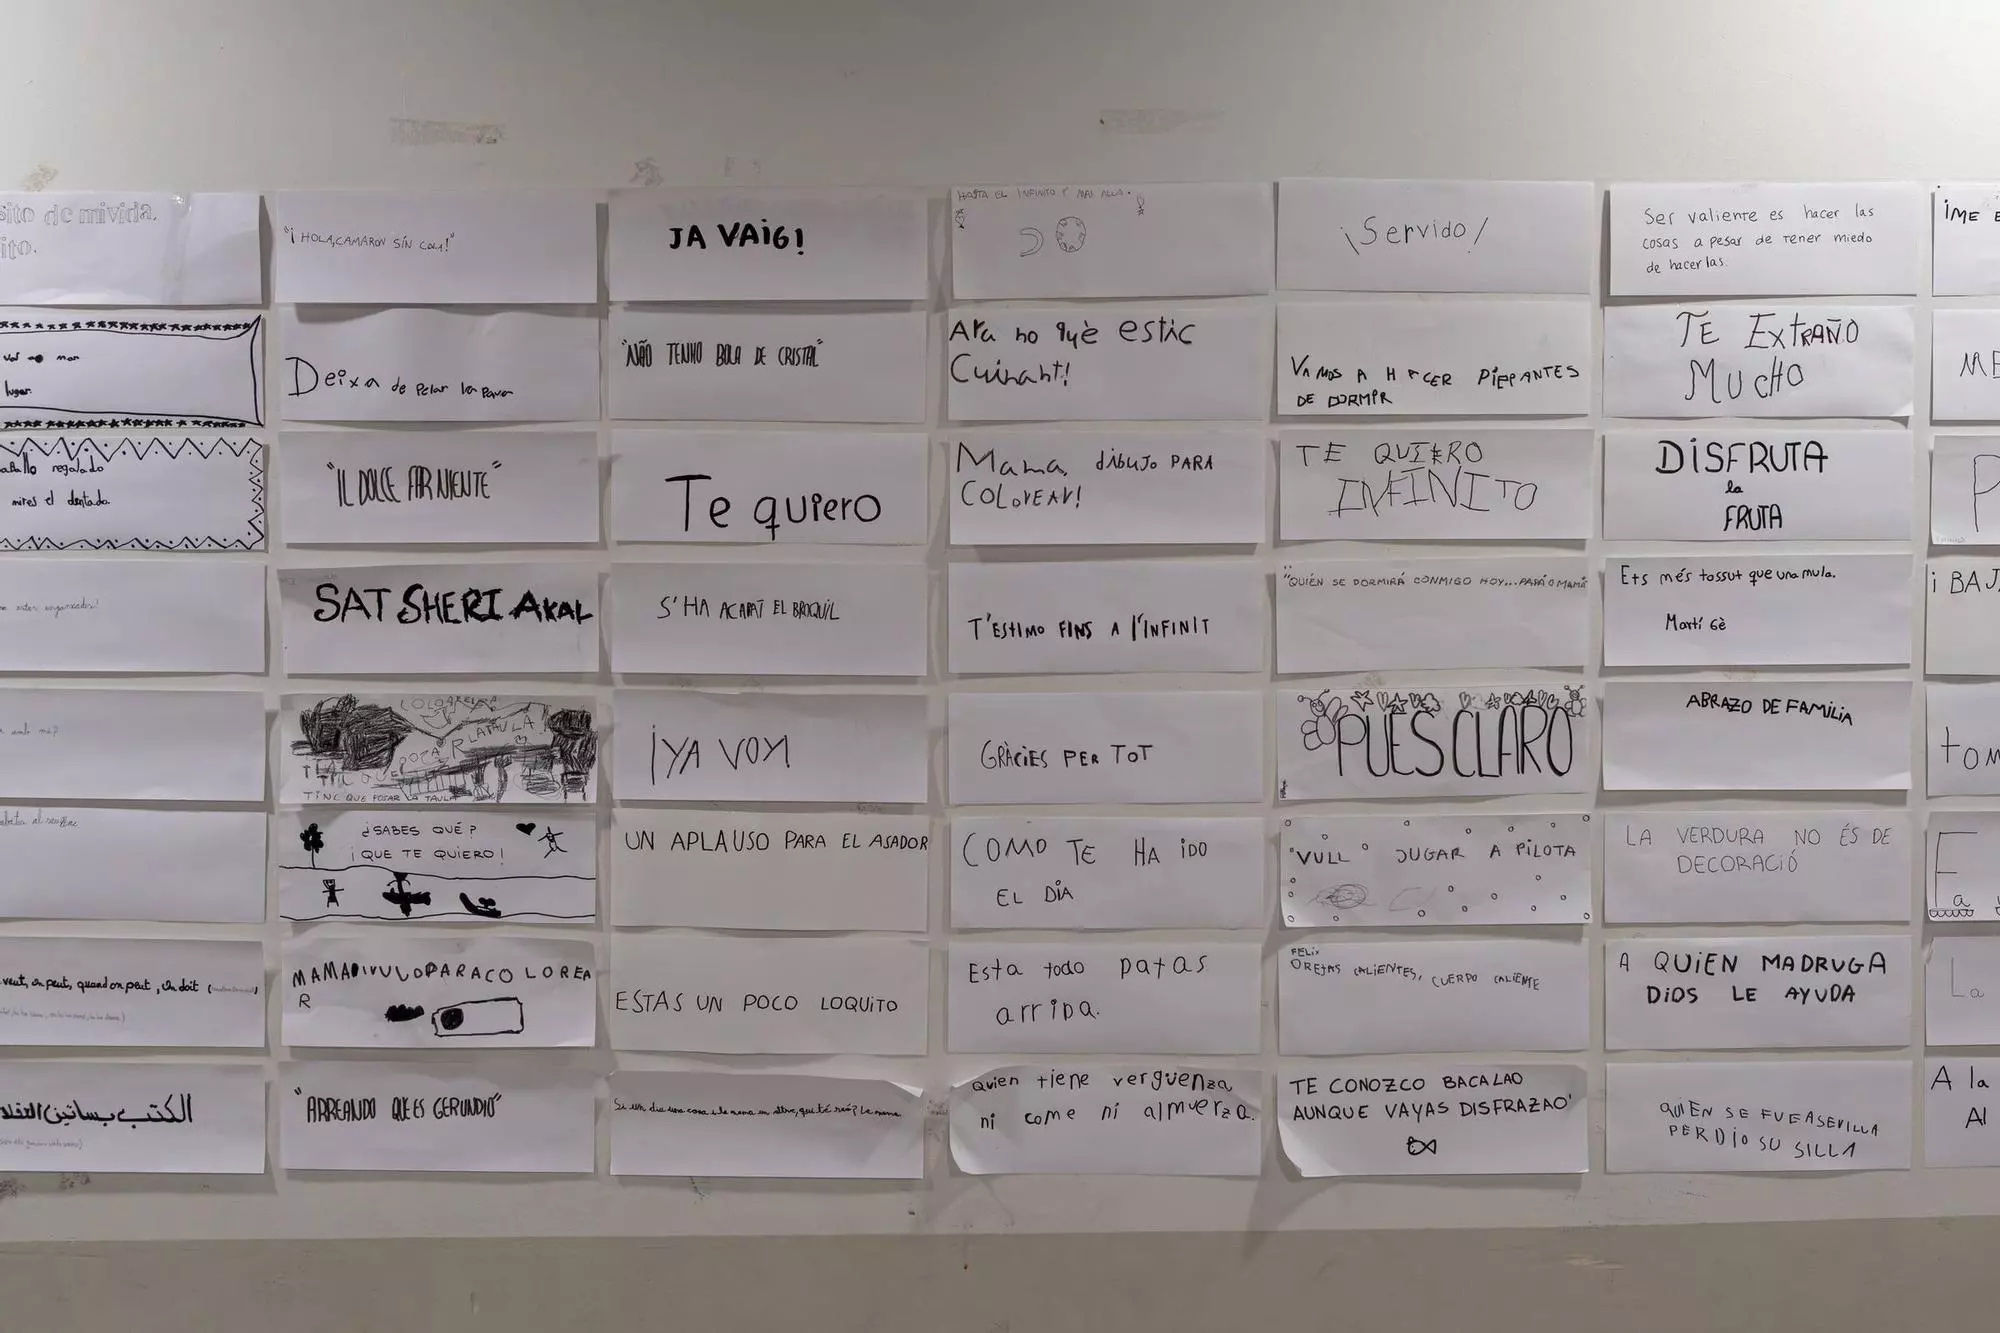 sito de mi vida.
ito.
"¡HOLA, CAMARON SÍN COLA!"
JA VAIG!
HASTA EL INFINITO Y MAS ALLA.
¡Servido!
Ser valiente es hacer las
cosas a pesar de tener miedo
de hacerlas.
¡ME E
mar
lugar.
Deixa de pelar la pava
"NÃO TENHO BOLA DE CRISTAL"
Ara no què estic
Cuinant!
VAMOS A HACER PIEPPANTES
DE DORMIR
TE EXTRAÑO
MUCHO
ME
aballo regalado
mires el dentado.
"IL DOLCE FAR NIENTE"
Te quiero
Mama, dibujo PARA
COLOrEAr!
TE QUIERO
INFINITO
DISFRUTA
la
FRUTA
P
SAT SHERI AKAL
S'HA ACABAT EL BROQUIL
T'ESTIMO FINS A l'INFINIT
"QUIÉN SE DORMIRÁ CONMIGO HOY...PAPÁ O MAMÁ
Ets més tossut que una mula.
Martí Gè
¡BAJ
amb mi?
TINC QUE POSAR LA TAULA
¡YA VOY!
GRÀCIES PER TOT
PUES CLARO
ABRAZO DE FAMILIA
tom
¿SABES QUÉ?
¡QUE TE QUIERO!
UN APLAUSO PARA EL ASADOR
COMO TE HA iDO
EL DIA
"VULL" JUGAR A PILOTA
LA VERDURA NO ÉS DE
DECORACIÓ
Fa
veut, on peut, quand on peut, on doit
MAMADIVULOPARACOLOREA
R
ESTAS UN POCO LOQUITO
Esta todo patas
arriba.
FELIX
OREJAS CALIENTES, CUERPO CALIENTE
A QUIEN MADRUGA
DIOS LE AYUDA
La
الكتب بساتين العقلا
"ARREANDO QUE ES GERUNDIO"
Si un dia una cosa i la mama un altre, què té raó? La mama.
Quien tiene vergüenza
ni come ni almuerza.
TE CONOZCO BACALAO
AUNQUE VAYAS DISFRAZAO'
QUIEN SE FUE A SEVILLA
PERDIO SU SILLA
A la
Al